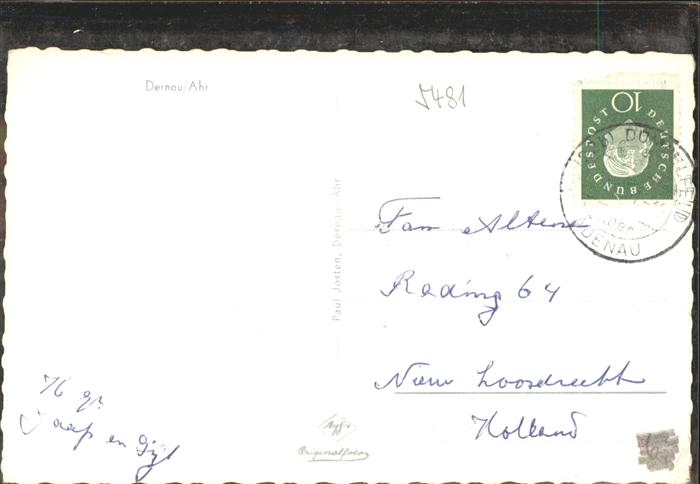 Dernau/Ahr
5481
10
DEUTSCHE BUNDESPOST
ADENAU
Paul Josten, Dernau/Ahr
Fam Altena
Rading 64
Nieuw Loosdrecht
Holland
H gr
Jaap en
Agfa
Originalfoto